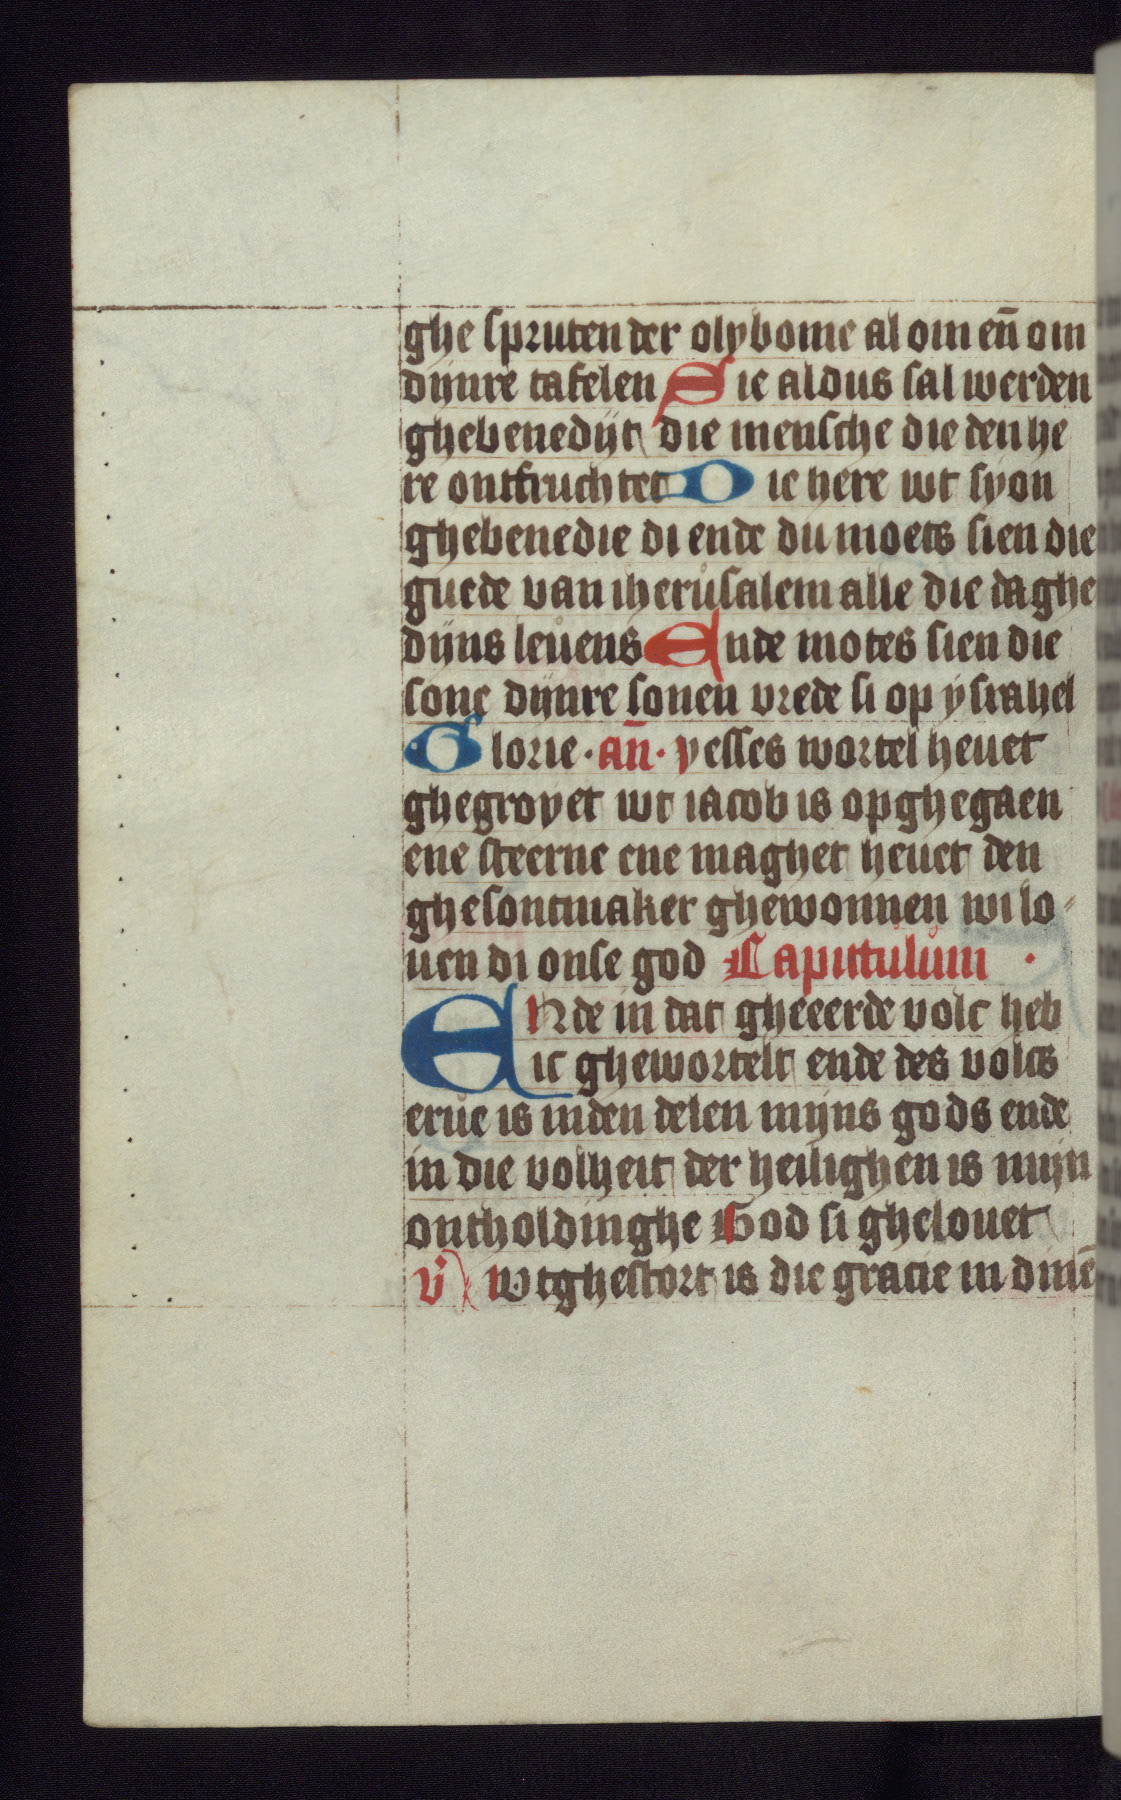 ghe spruten der olybome al om en̄ om
dijnre tafelen Sie aldus sal werden
ghebenedijt die mensche die den he
re ontfruchtet Die here wt syon
ghebenedie di ende du moets sien die
guede van iherusalem alle die daghe
dijns leuens Ende motes sien die
sone dijnre sonen vrede si op ysrahel
Glorie · an̄ · yesses wortel heuet
ghegroyet wt iacob is opghegaen
ene steerne ene maghet heuet den
ghesontmaker ghewonnen wi lo-
uen di onse god Capittulum ·
ENde in dat gheeerde volc heb
ic ghewortelt ende des volcs
erue is in den delen mijns gods ende
in die volheit der heilighen is mijn
ontholdinghe God si ghelouet
v̇ wtghestort is die gracie in dinē